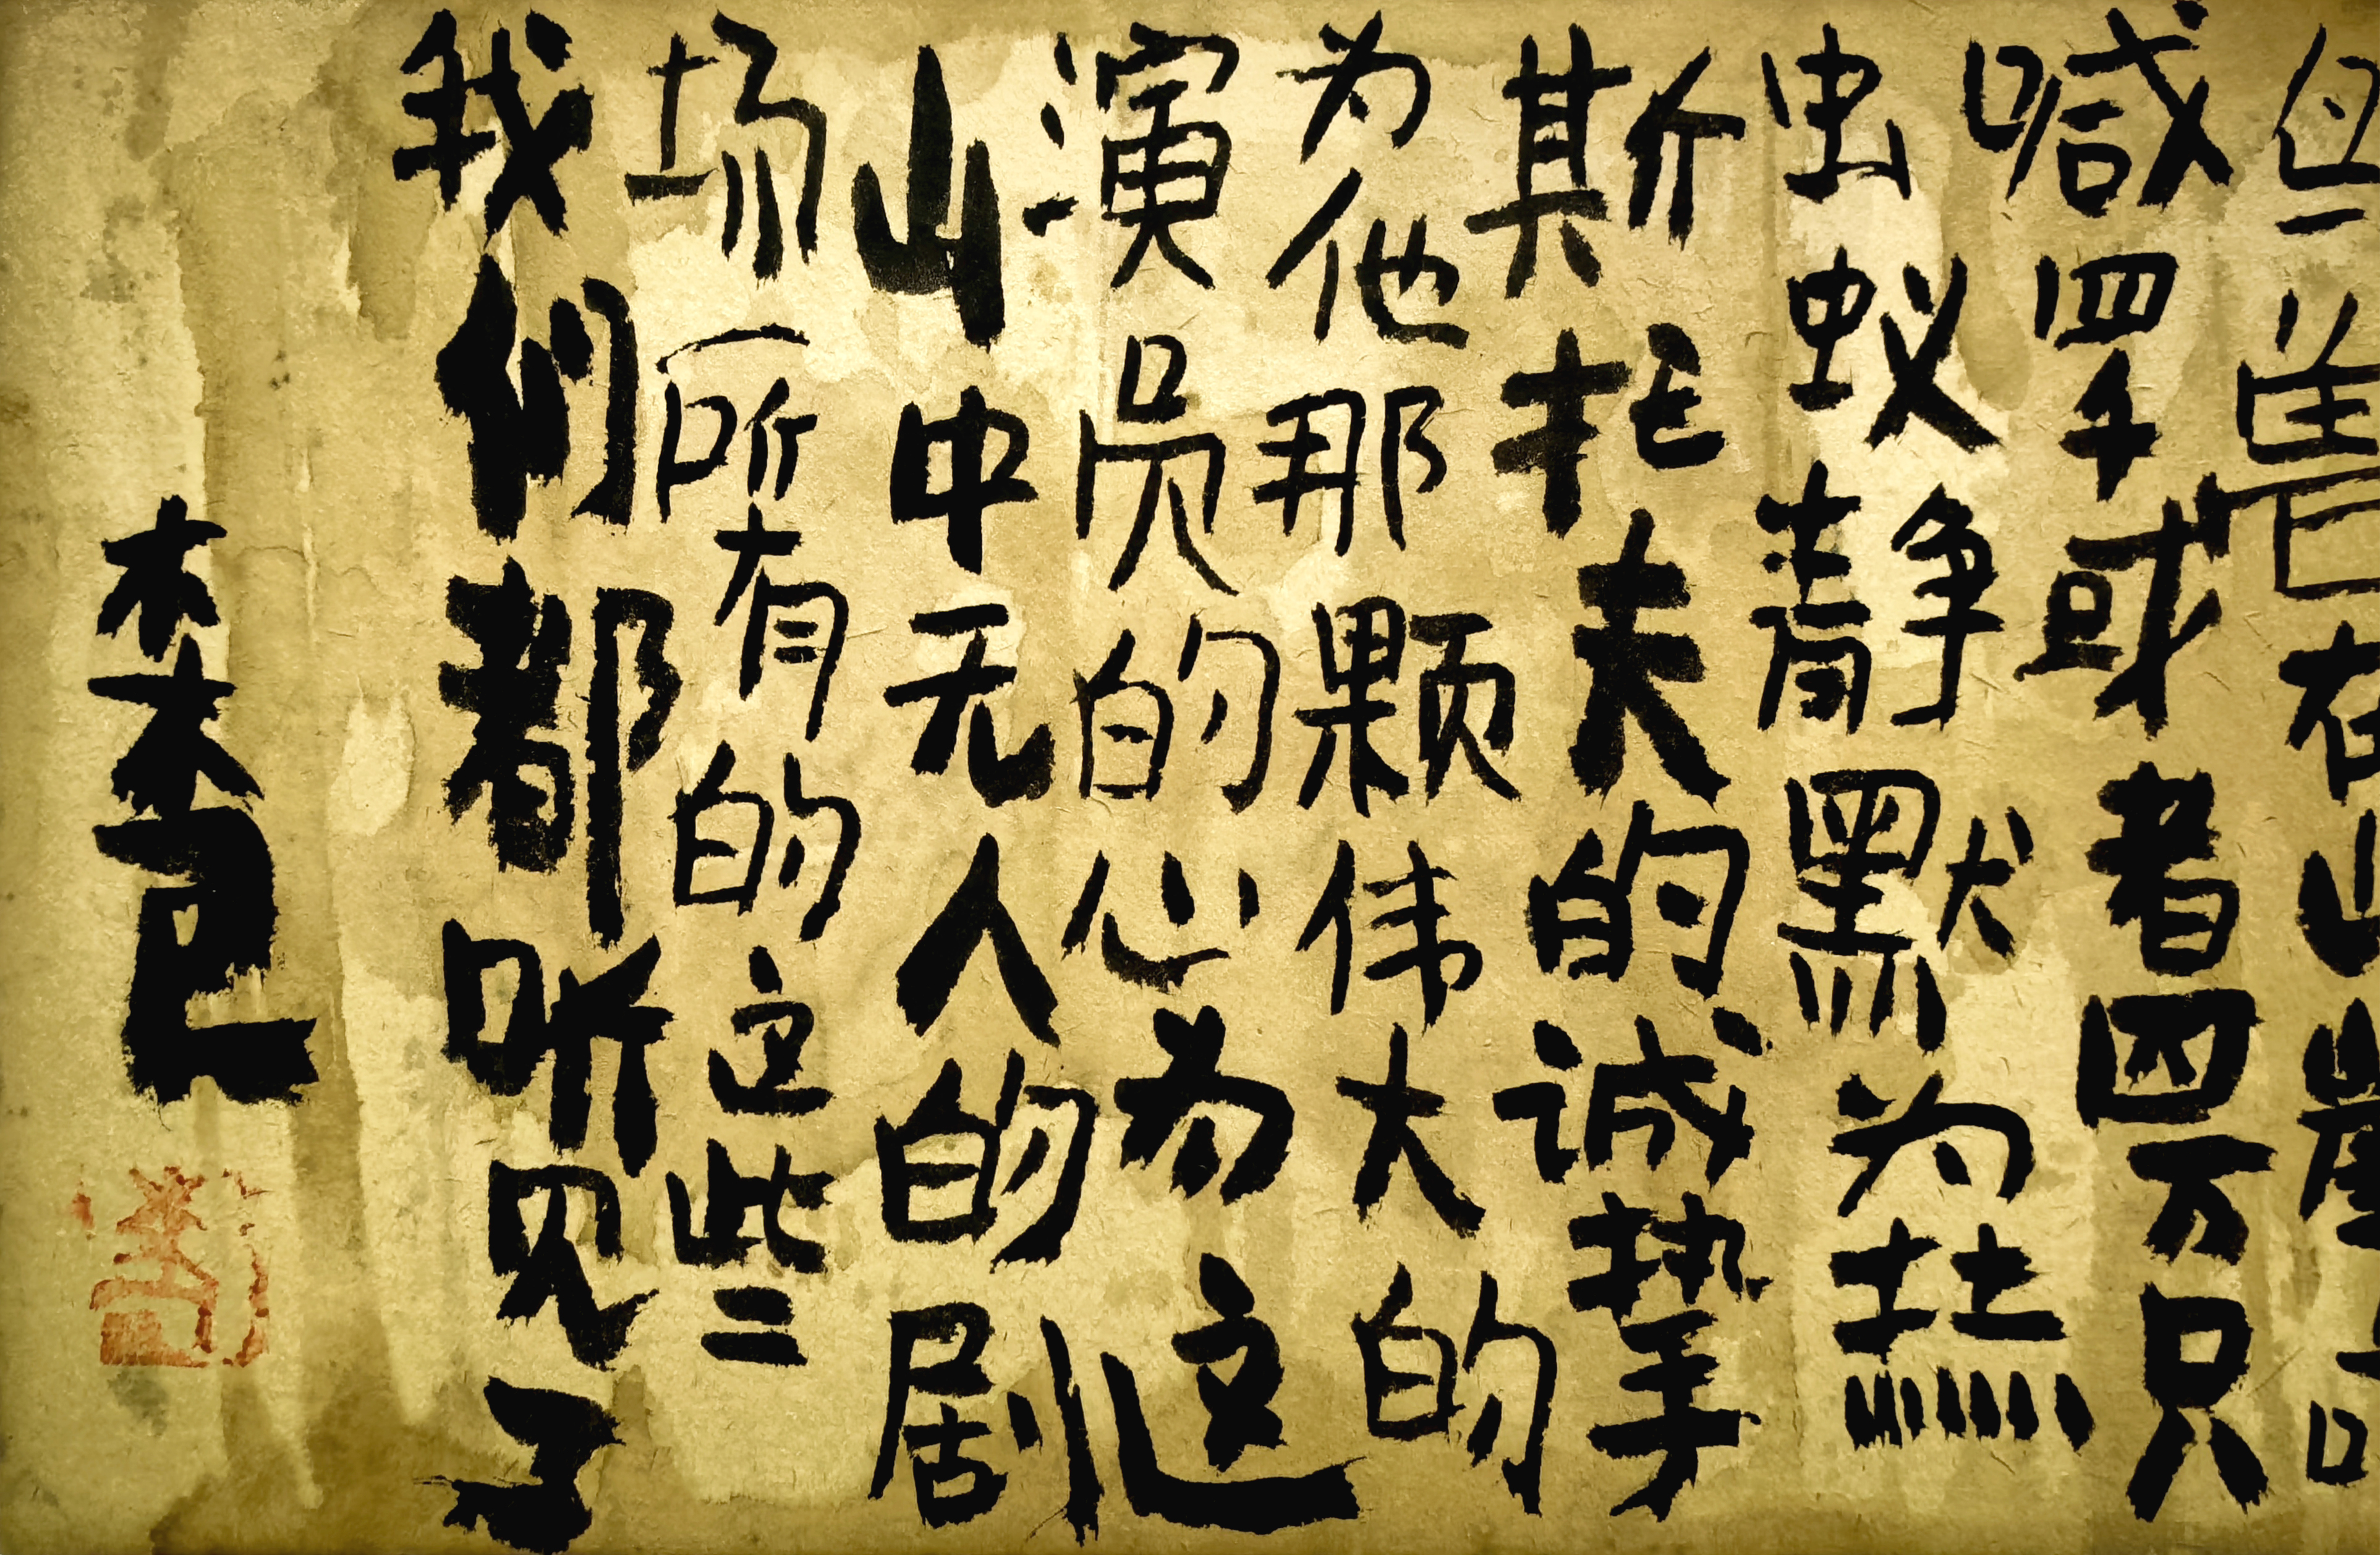 兽在山崖
喊四千或者四万只
虫蚁静默为
斯托夫的诚挚
为他那颗伟大的
演员的心为这
山中无人的剧
场所有的这些
我们都听见了